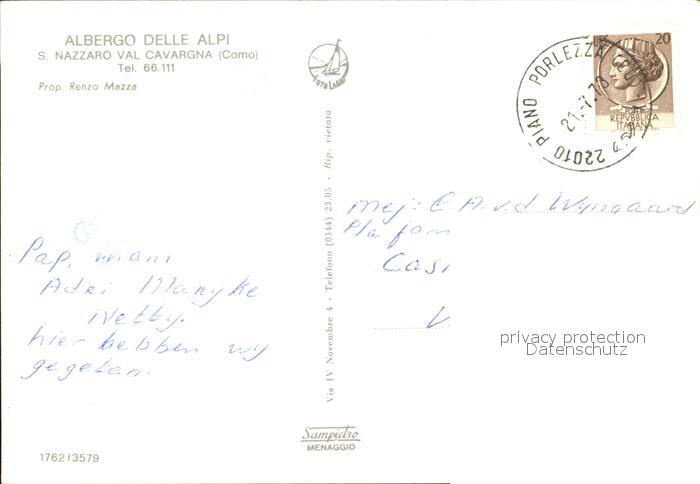 ALBERGO DELLE ALPI
S. NAZZARO VAL CAVARGNA (Como)
Tel. 66.111
Prop. Renzo Mazza
FOTO LARIO
20
REPVBBLICA
ITALIANA
22010 PIANO PORLEZZA
Via IV Novembre 4 - Telefono (0344) 23.05 - Rip. vietata
mej: C A. v. d Wyngaard
Casi
V
Pap, mam
Adri Maryke
Netty.
hier hebben wy
gegeten.
privacy protection
Datenschutz
Sampietro
MENAGGIO
1762/3579